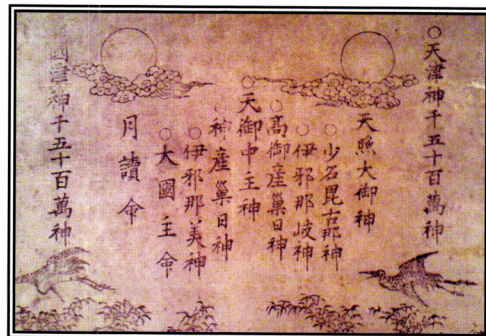 ○天津神千五十百萬神
天照大御神
○少名毘古那神
○伊邪那岐神
○高御産巢日神
○天御中主神
○神産巢日神
○伊邪那美神
○大國主命
月讀命
國津神千五十百萬神